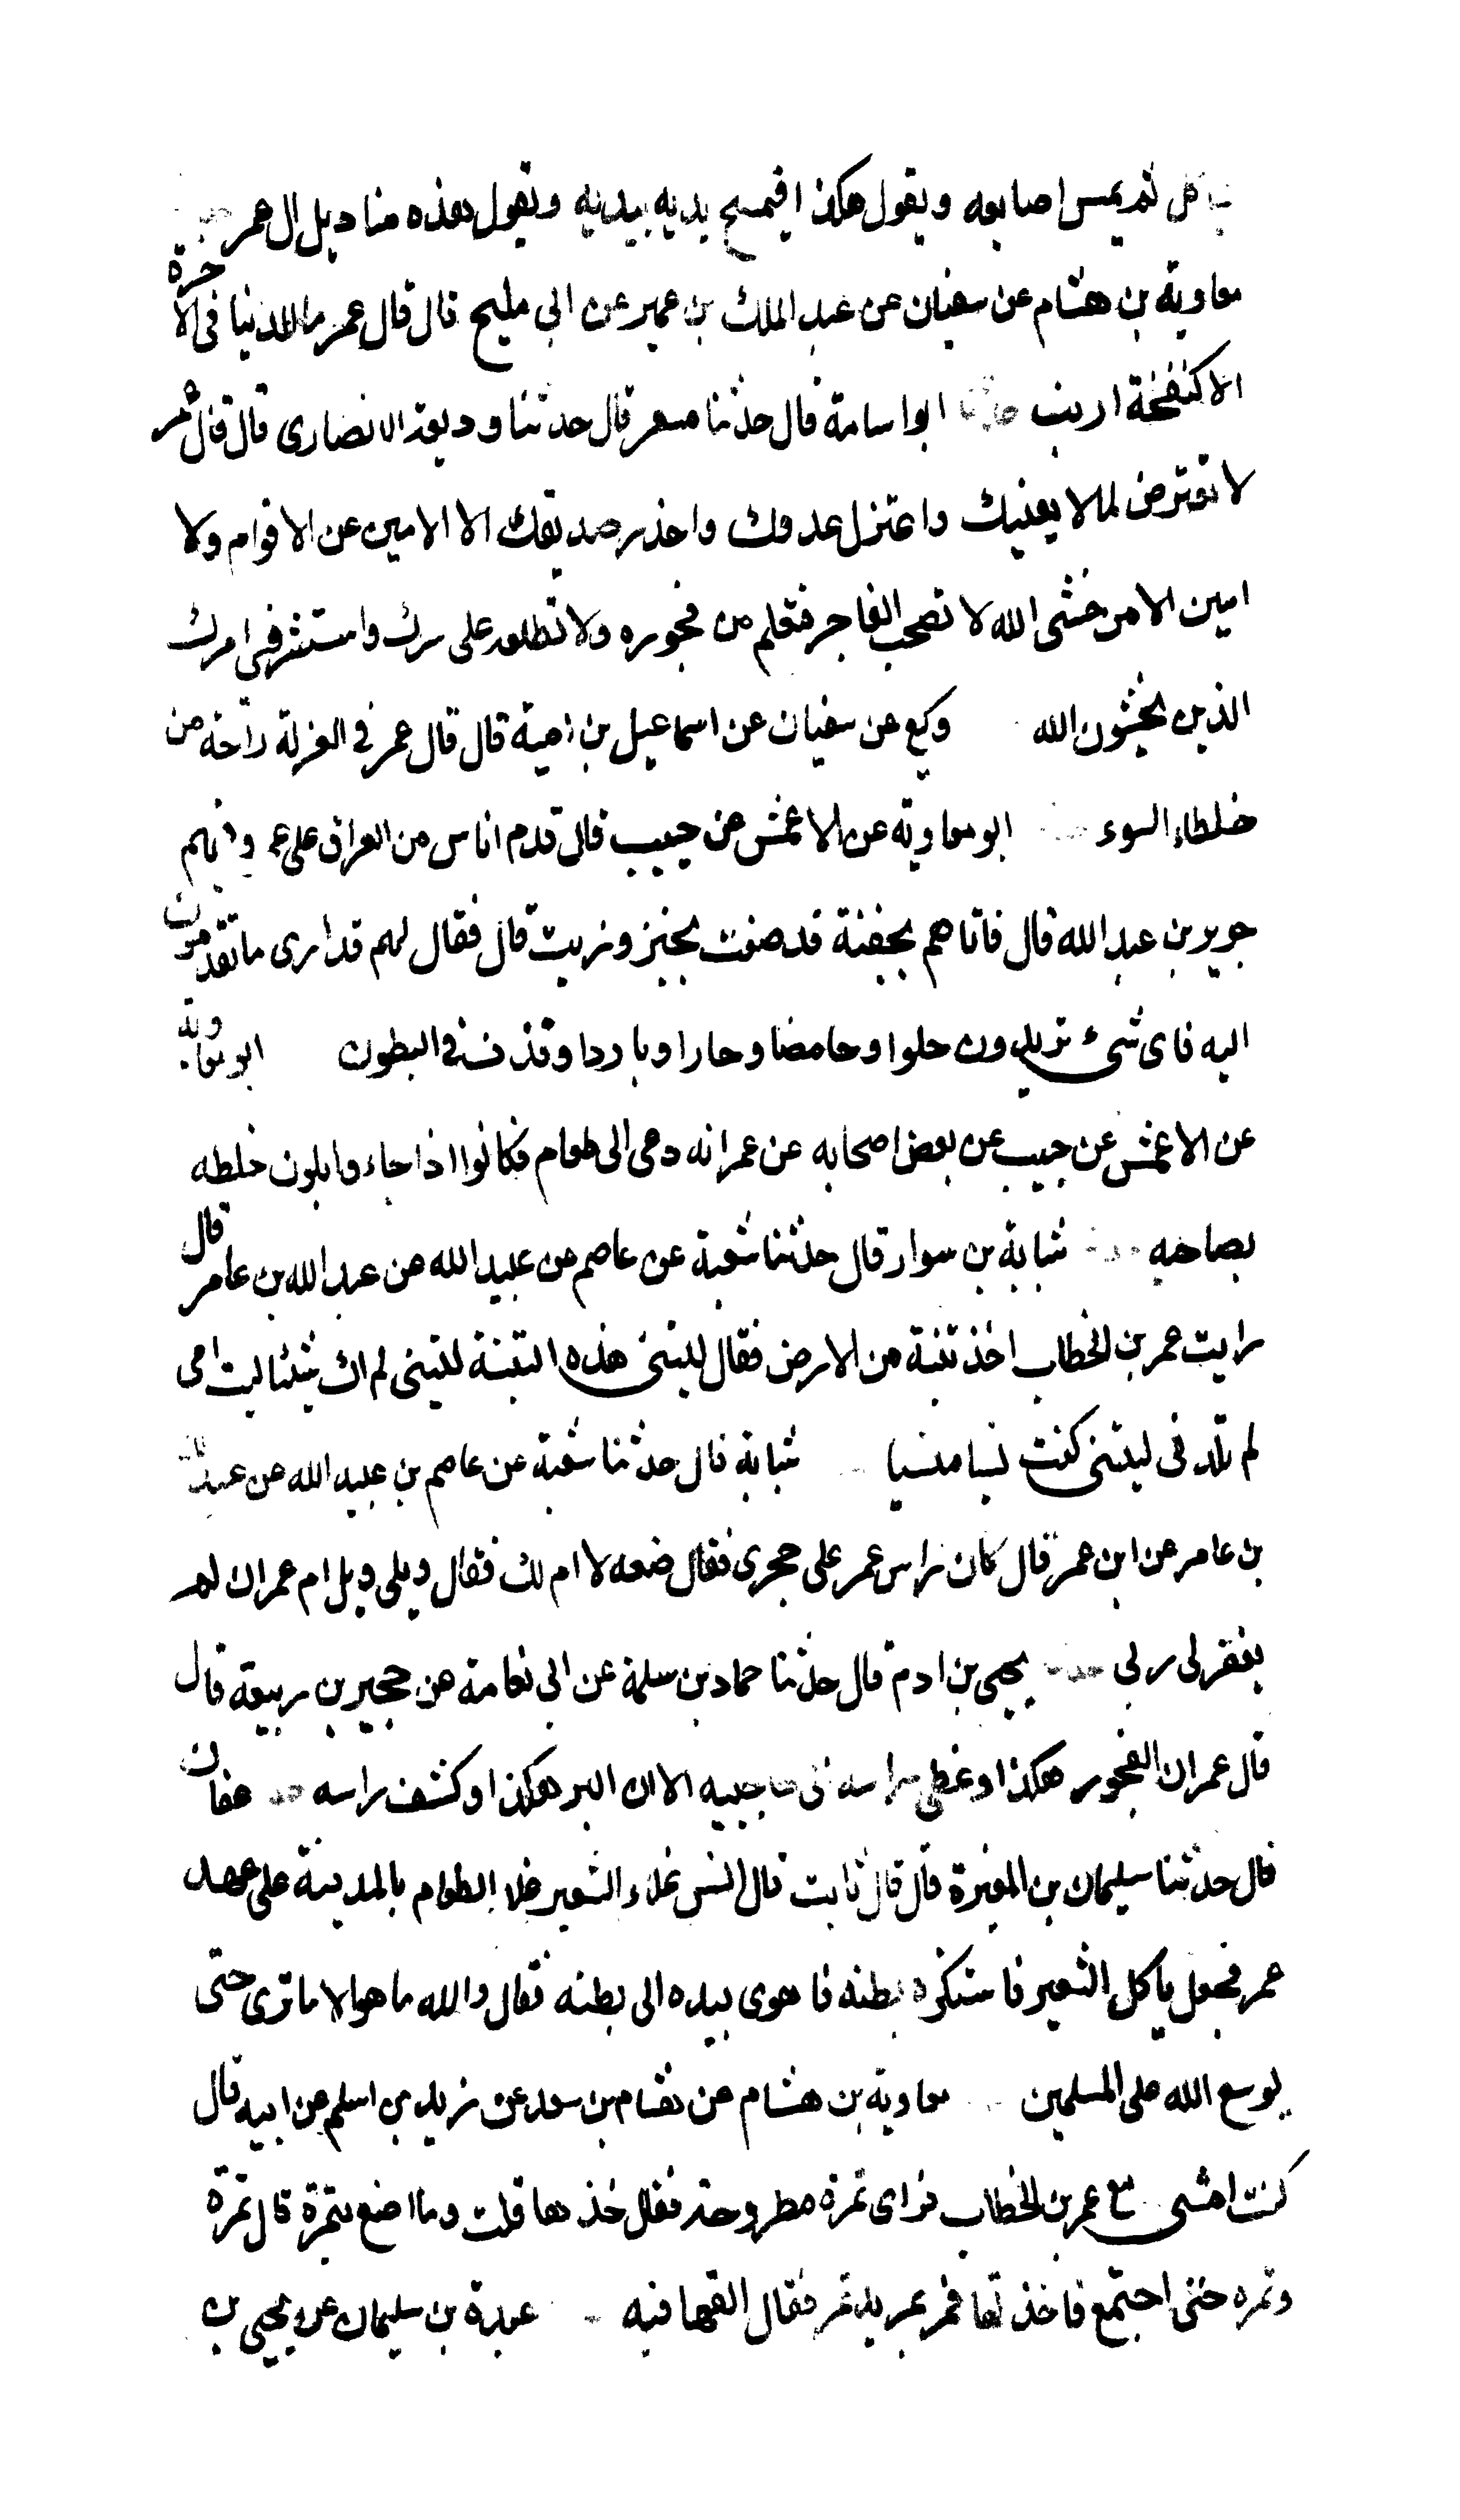 ياكل ثم يمس اصابعه ويقول هكذا فيمسح يديه بيديه ويقول هذه مناديل ال عمر
معاوية بن هشام عن سفيان عن عبد الملك بن عمير عن ابي مليح قال قال عمر ما الدنيا في الاخرة
الا كنفخة ارنب حدثنا ابو اسامة قال حدثنا مسعر قال حدثنا وديعة الانصارى قال قال عمر
لا تعترض لما لا يعنيك واعتزل عدوك واحذر صديقك الا الامين عن الاقوام ولا
امين الا من خشى الله لا تصحب الفاجر فتعلم من فجوره ولا تطلعه على سرك واستشر في امرك
الذين يخشون الله وكيع عن سفيان عن اسماعيل بن امية قال قال عمر في العزلة راحة من
خلطاء السوء ابو معاوية عن الاعمش عن حبيب قال قدم اناس من العراق على عمر وفيهم
جرير بن عبد الله قال فاتاهم بجفنة قد صنعت بخبز وزيت قال فقال لهم قد ارى ما تقدمون
اليه فاى شىء تريدون حلوا وحامضا وحارا وباردا وقذفا في البطون ابو معاوية
عن الاعمش عن حبيب عن بعض اصحابه عن عمر انه دعى الى طعام فكانوا اذا جاءوا بلون خلطه
بصاحبه شبابة بن سوار قال حدثنا شعبة عن عاصم عن عبيد الله عن عبد الله بن عامر قال
رايت عمر بن الخطاب اخذ تبنة من الارض فقال ليتنى هذه التبنة ليتنى لم اك شيئا ليت امى
لم تلدنى ليتنى كنت نسيا منسيا شبابة قال حدثنا شعبة عن عاصم بن عبيد الله عن عبد الله
بن عامر عن ابن عمر قال كان راس عمر على حجرى فقال ضعه لا ام لك فقال ويلى ويل ام عمر ان لم
يغفر لى ربى يحيى بن ادم قال حدثنا حماد بن سلمة عن ابى نعامة عن حجير بن ربيعة قال
قال عمر ان الفجور هكذا وغطى راسه الى حاجبيه الا ان البر هكذا وكشف راسه عفان
قال حدثنا سليمان بن المغيرة قال قال ثابت قال انس غلاء الشعير غلا الطعام بالمدينة على عهد
عمر فجعل ياكل الشعير فاستنكره بطنه فاهوى بيده الى بطنه فقال والله ما هو الا ما ترى حتى
يوسع الله على المسلمين معاوية بن هشام عن هشام بن سعد عن زيد بن اسلم عن ابيه قال
كنت امشى مع عمر بن الخطاب فراى تمرة مطروحة فقال خذها قلت وما اصنع بتمرة قال تمرة
وتمرة حتى اجتمع فاخذتها فمر بمربد تمر فقال القها فيه عبدة بن سليمان عن يحيى بن